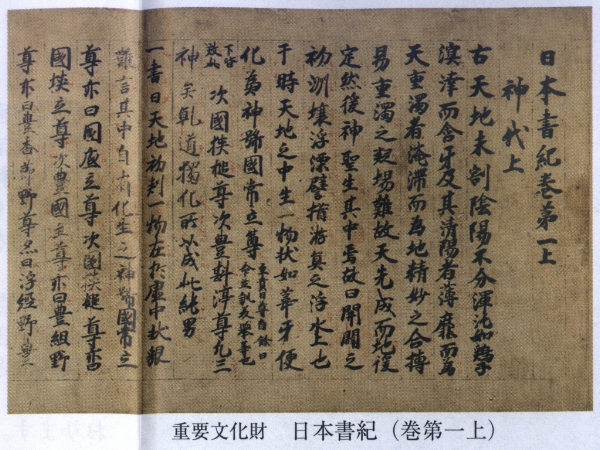 日本書紀巻第一上
神代上
古天地未剖陰陽不分渾沌如鶏子
溟涬而含牙及其清陽者薄靡而為
天重濁者淹滞而為地精妙之合搏
易重濁之凝場難故天先成而地後
定然後神聖生其中焉故曰開闢之
初洲壌浮漂譬猶游魚之浮水上也
于時天地之中生一物状如葦牙便
化為神號國常立尊至貴曰尊自餘曰命並訓美挙等也
下皆效此次國狭槌尊次豊斟渟尊凡三
神矣乾道獨化所以成此純男
一書曰天地初判一物在於虚中状貌
難言其中自有化生之神號國常立
尊亦曰國底立尊次國狭槌尊亦曰
國狭立尊次豊國主尊亦曰豊組野
尊亦曰豊香節野尊亦曰浮經野豊
重要文化財　日本書紀（巻第一上）